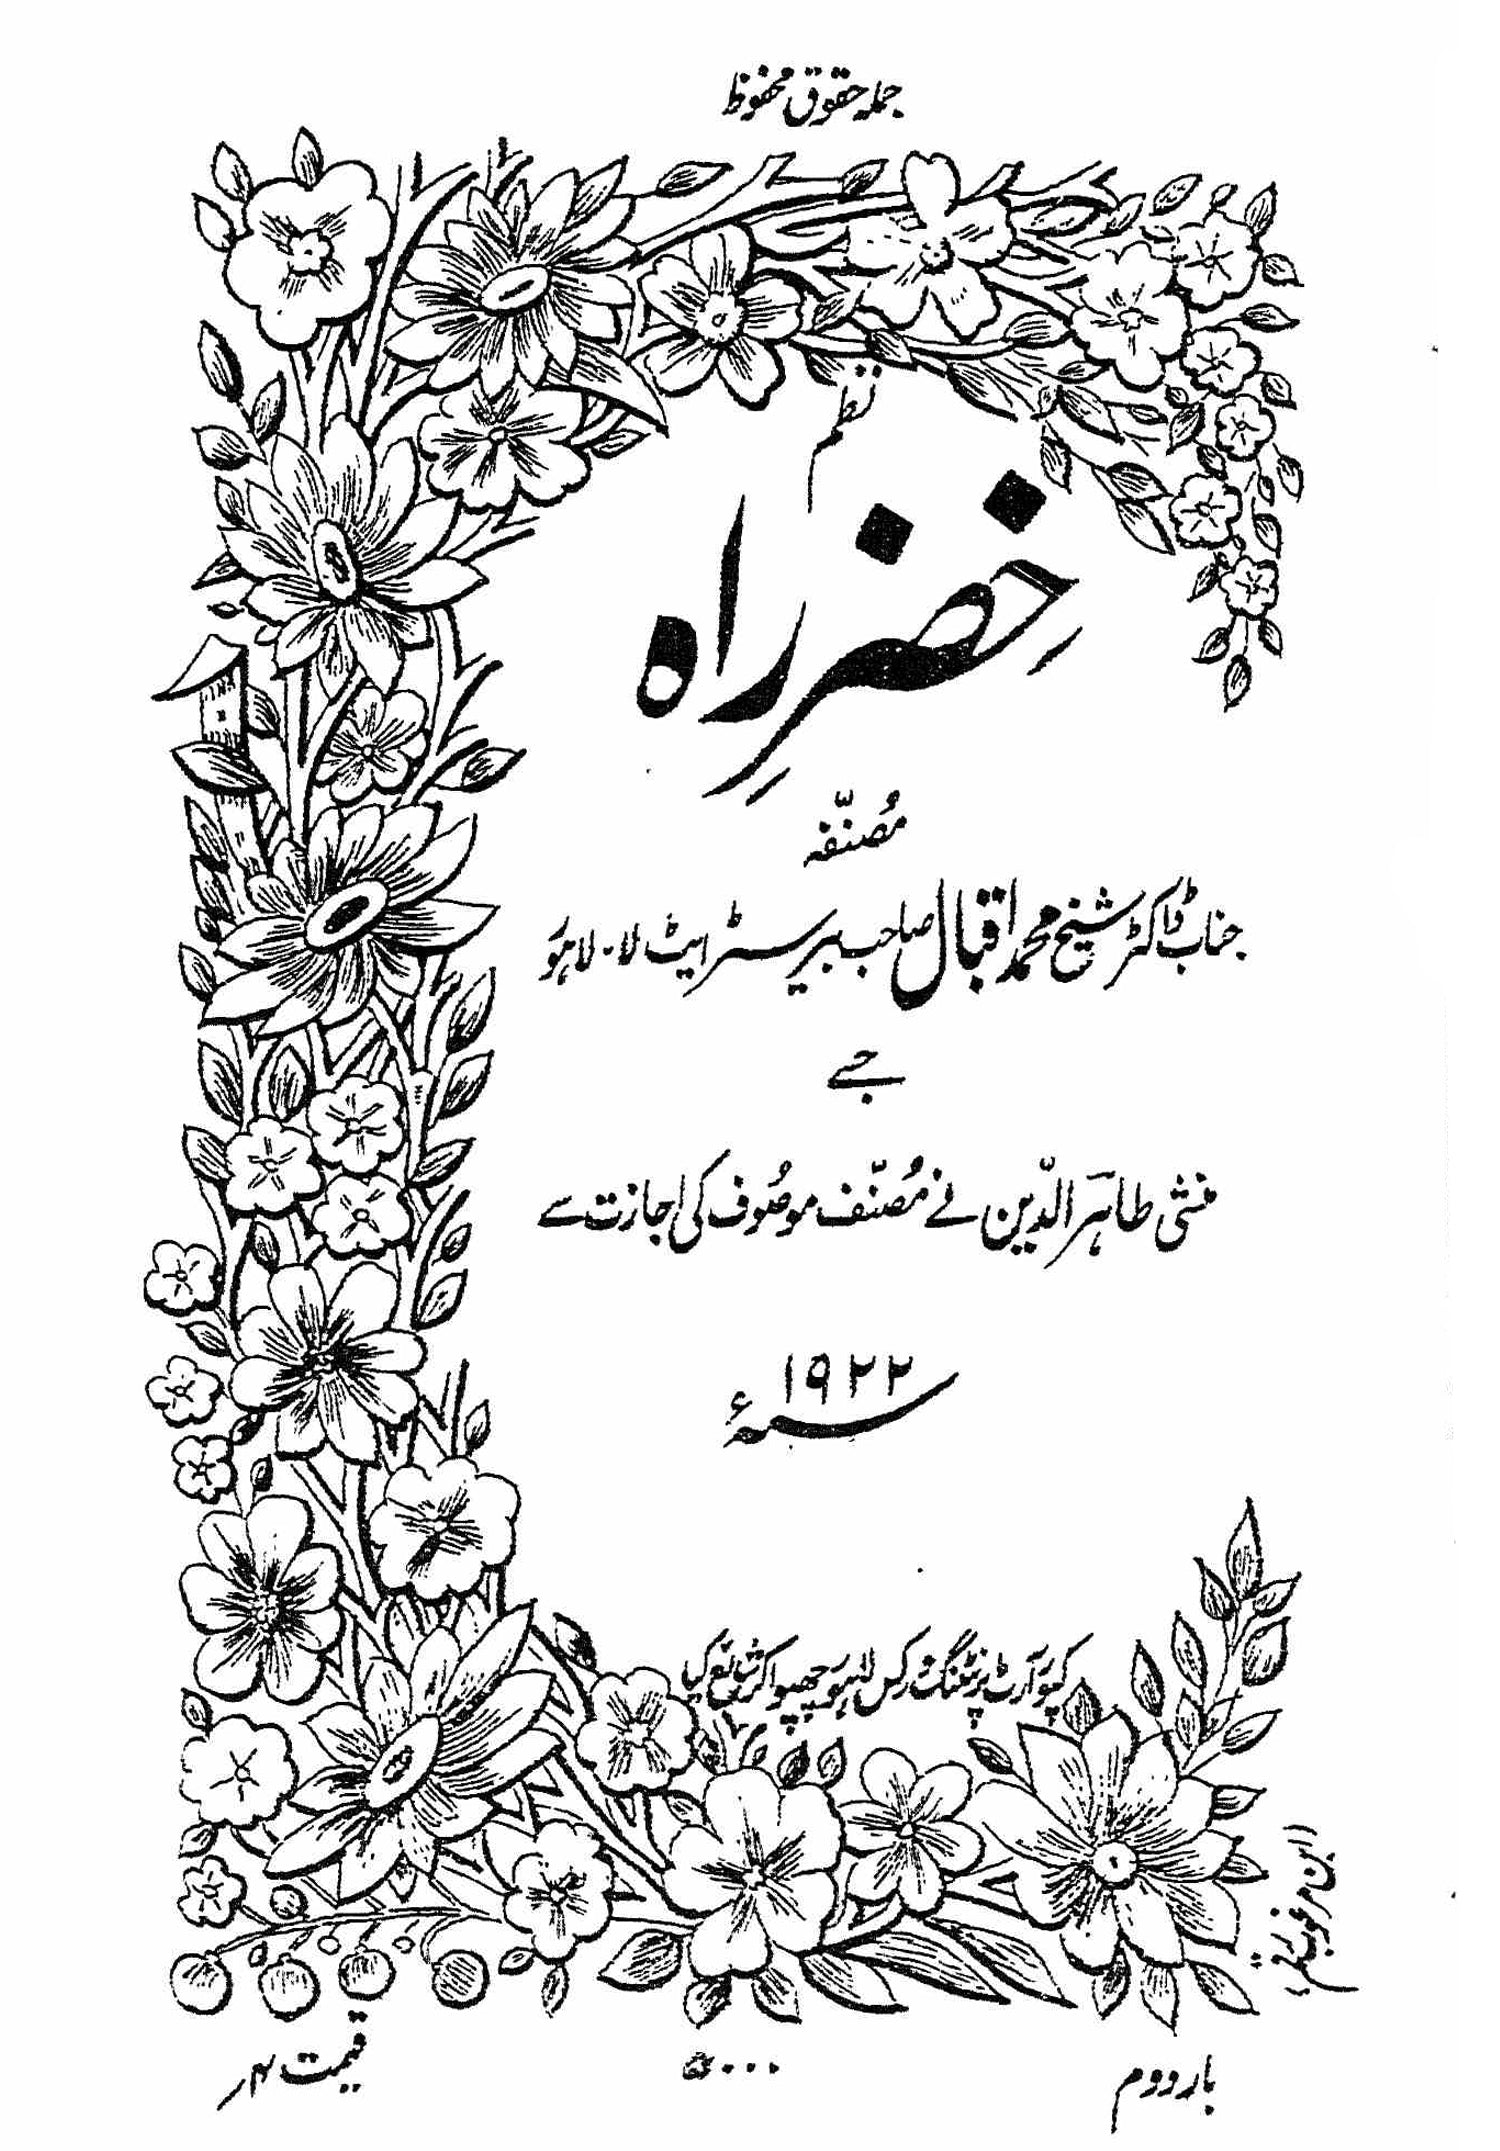 جملہ حقوق محفوظ
نظم
خِضرِ راہ
مُصنّفہ
جناب ڈاکٹر شیخ محمد اقبال صاحب بیرسٹر ایٹ لا۔ لاہور
جسے
منشی طاہر الدّین نے مُصنّف موصُوف کی اجازت سے
سنہ ۱۹۲۲ء
کپور آرٹ پرنٹنگ ورکس لاہور چھپوا کر شائع کیا
بار دوم
۵۰۰۰
قیمت ۴ر